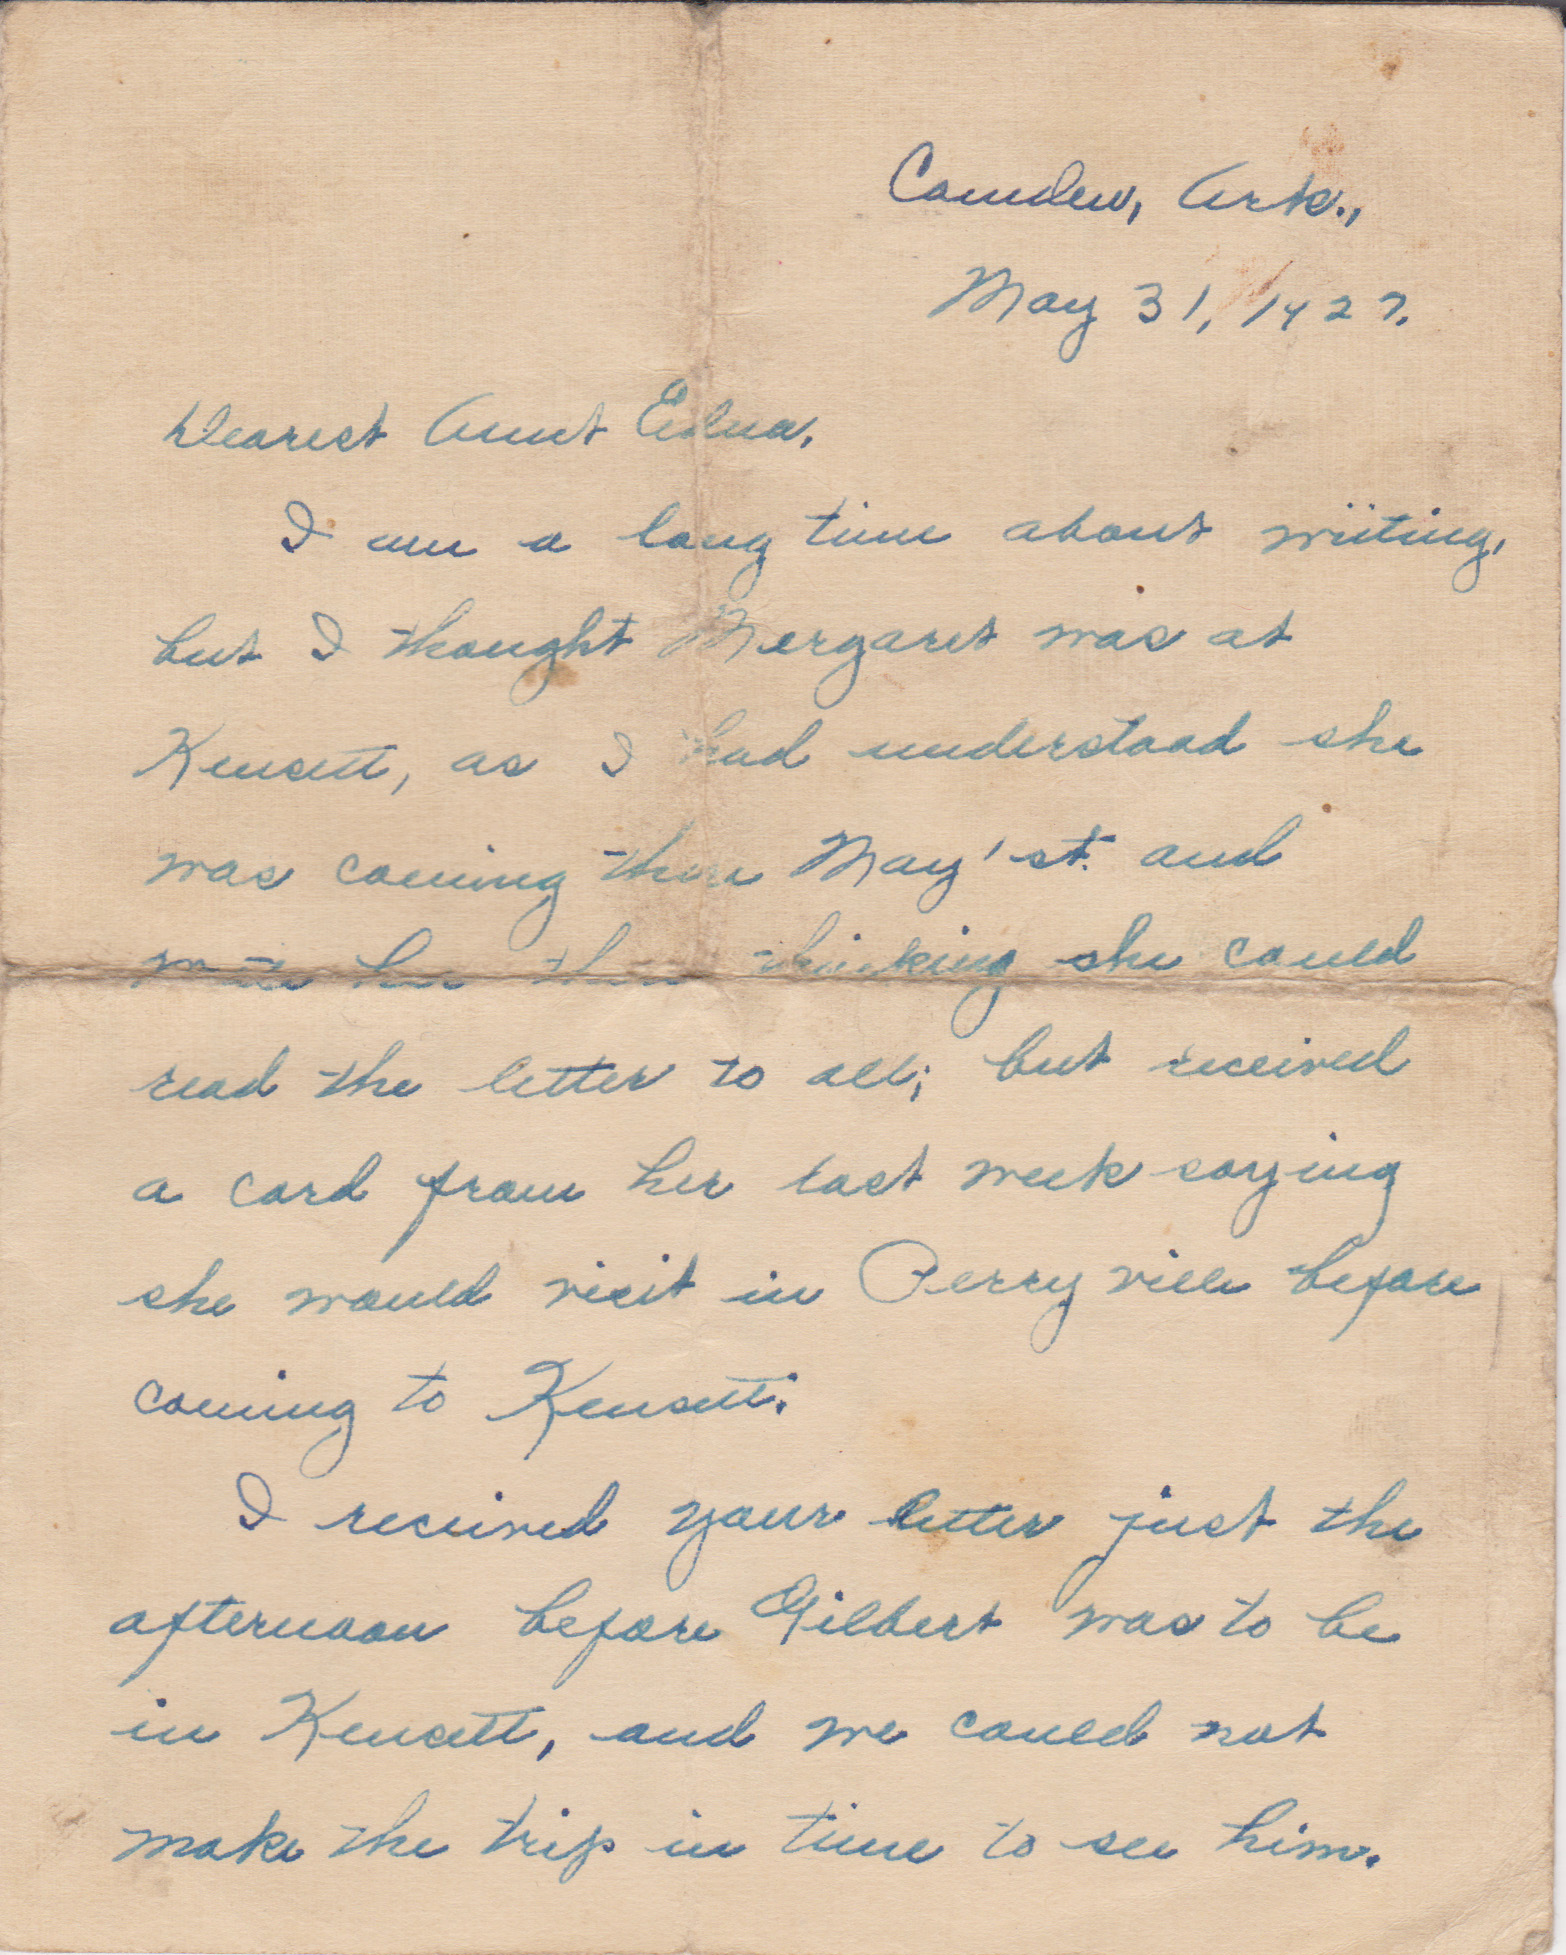 Camden, Ark.,
May 31, 1927.
Dearest Aunt Edna,
I am a long time about writing,
but I thought Margaret was at
Kensett, as I had understood she
was coming there May 1st. and
wrote her there thinking she could
read the letter to all; but received
a card from her last week saying
she would visit in Perryville before
coming to Kensett.
I received your letter just the
afternoon before Gilbert was to be
in Kensett, and we could not
make the trip in time to see him.